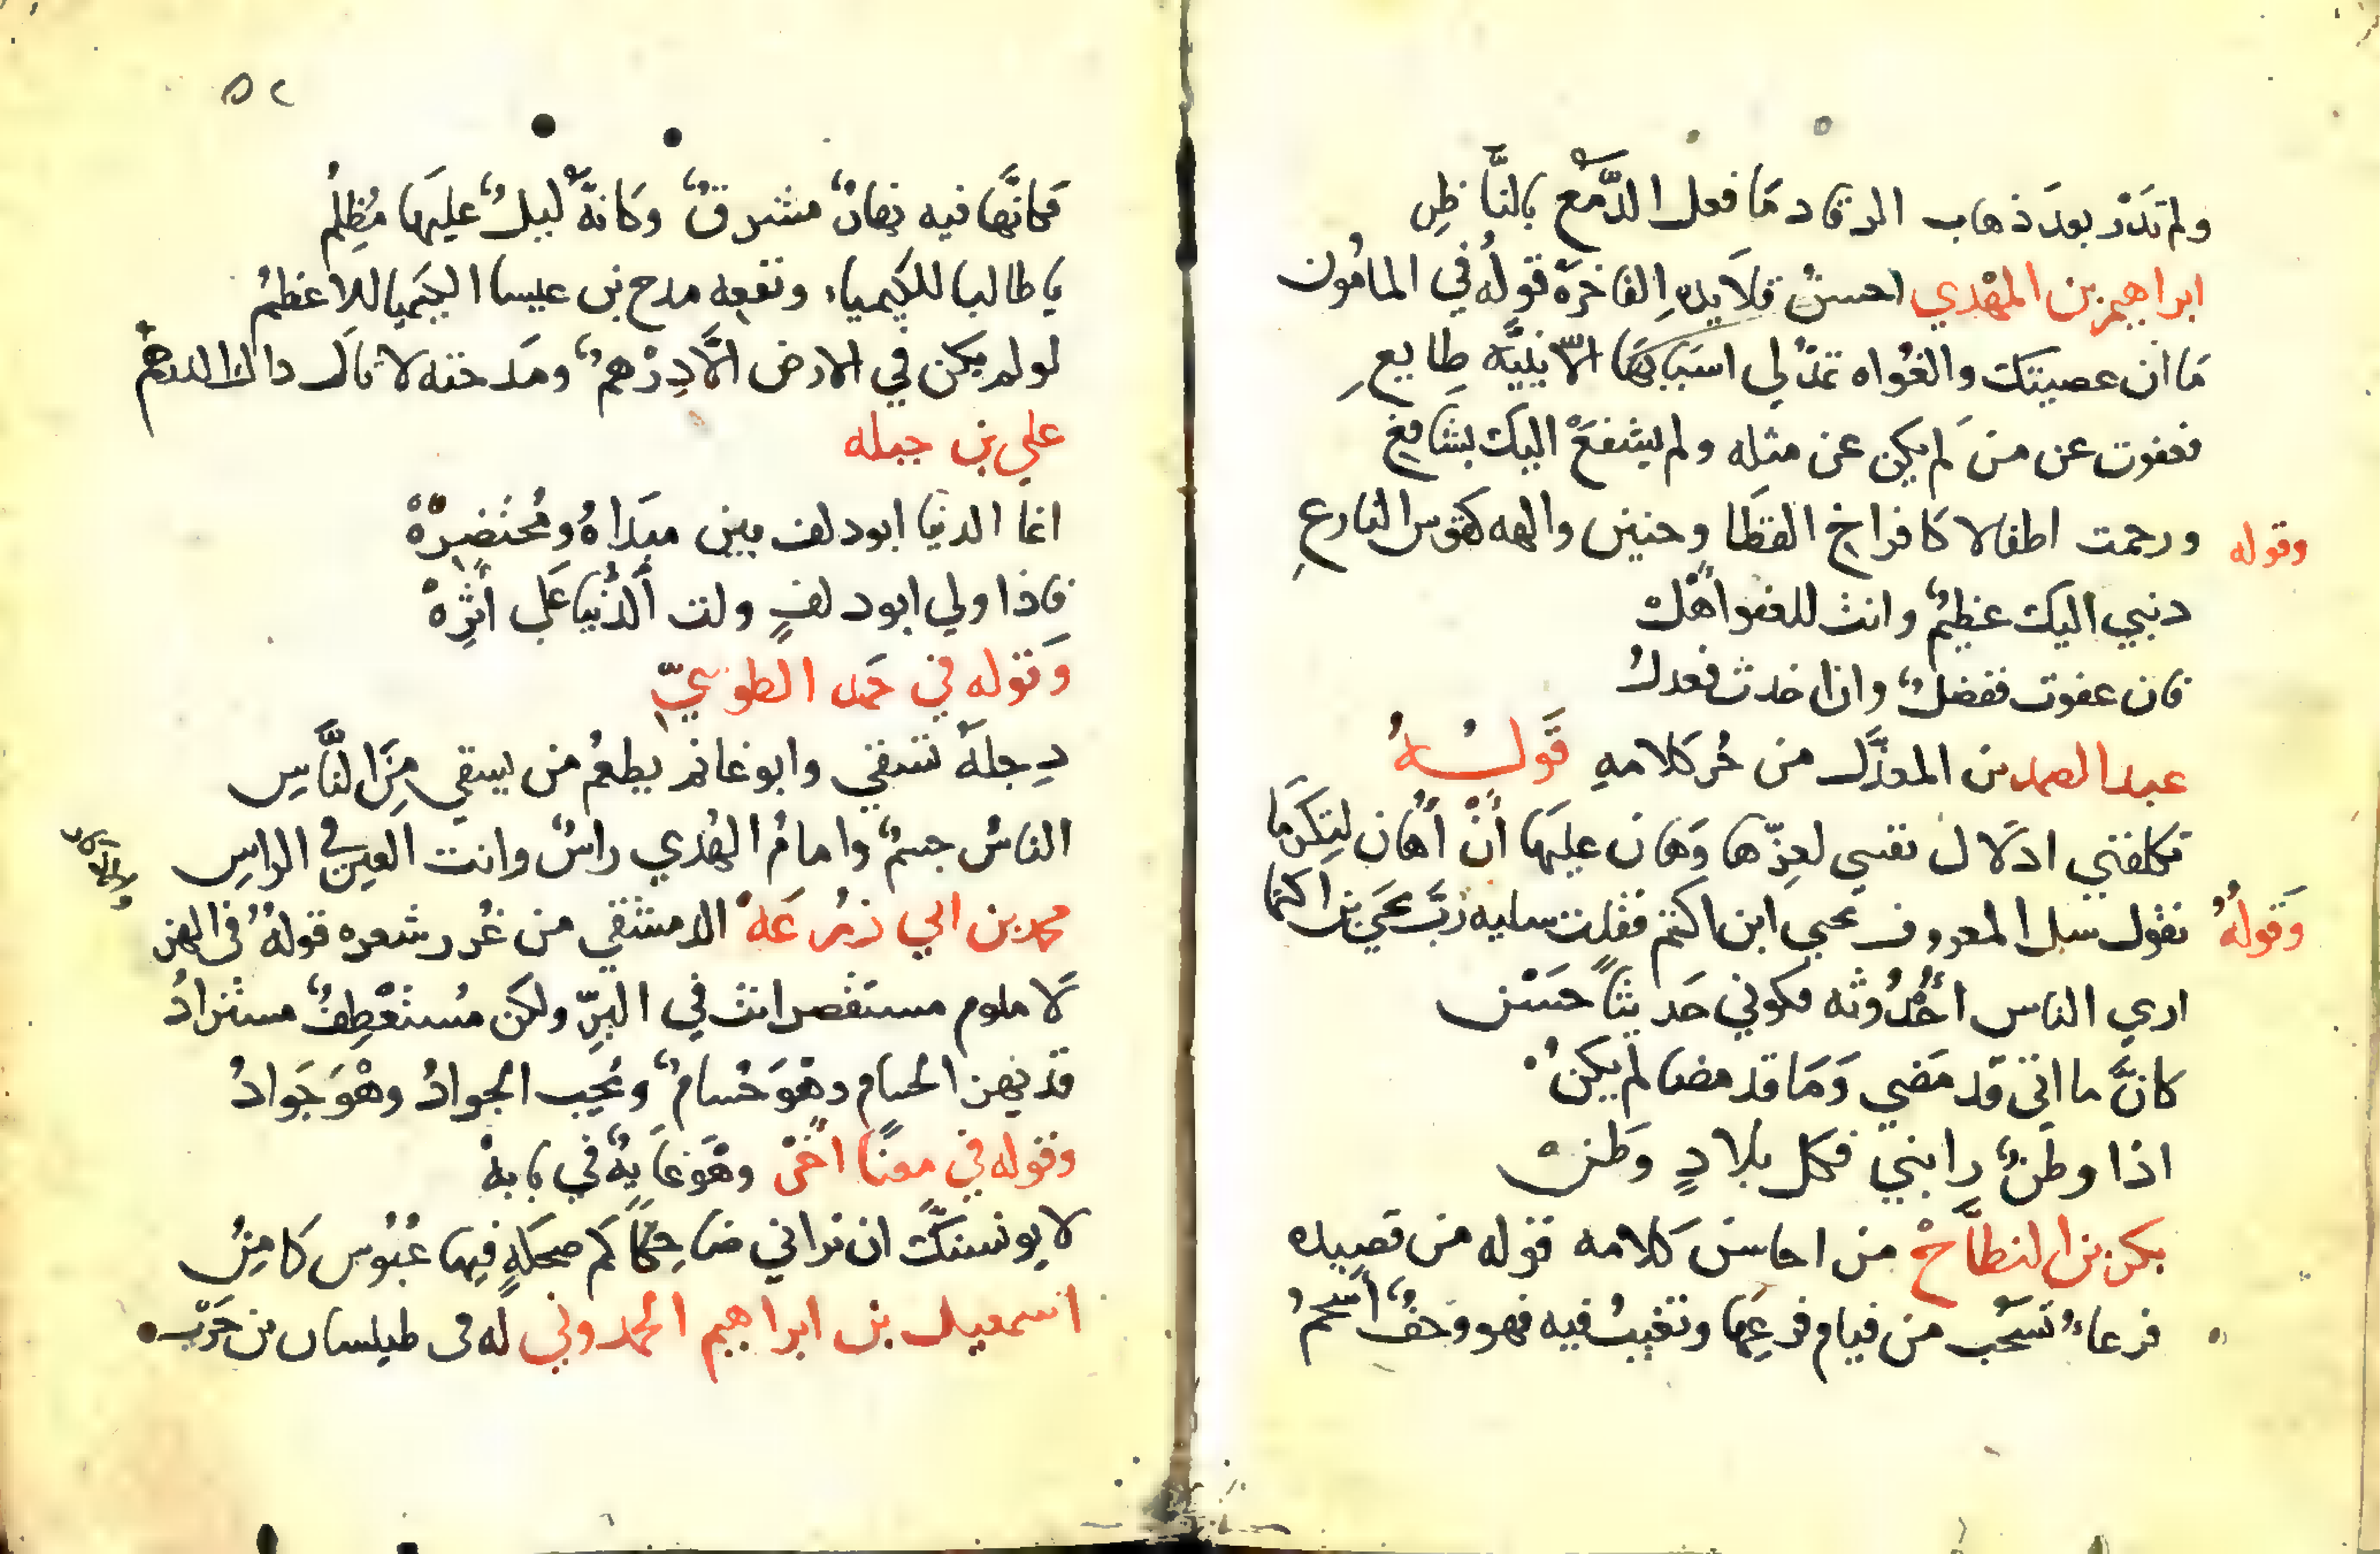 ولم تَدْر بعدَ ذهاب الرقاد مَا فعل الدَّمْع بالنَّاظِر
ابراهيم بن المهْدي احسنُ قلَايدهِ الفاخرَة قولُه في المامُون
مَا ان عصيتك والغُواه تمدُّ لي اسبَابهَا الّا بنيَّه طِايع
فعفوت عن من لَم يكن عن مثله ولم يشفعْ اليك بشَافع
وقوله ورحمت اطفالا كافراخ القطَا وحنين والهه كقوس النازع
دنبي اليك عظيمٌ وانت للعفو اهْل
فان عفوت ففضلٌ وان اخدت فعدلُ
عبد الصمد بن المعذَّل من حُر كلامهِ قَولـــهُ
تكلفني ادلَال نفسي لعِزّها وَهَان عليهَا أنْ أُهَان لِتكرَمَا
وَقولهُ تقول سل المعروف يحيى ابن اكثم فقلت سليه رَبَّ يحيَى بن اكثما
اري الناس اُحْدُوثه فكوني حَديثاً حَسَن
كانَّ ما اتَى قَد مَضي وَمَا قد مضا لم يكنْ
اذا وطَنٌ رابني فكل بلادٍ وَطن
بكر بن النطَّاحْ من احاسن كلامه قوله من قصيده
فرعاءُ تسحَب من قيام فرعِهَا وتغيبُ فيه فهو وَحفٌ أسحمُ
٥٢
فكانَّها فيه نهارٌ مشرقٌ وكانهُّ ليلٌ عليهَا مُظِلِمُ
يا طالبا للكيمياء ونفعه مدح بن عيسا الكيميا للاعظمُ
لو لم يكن في الارض الَّا دِرْهمٌ ومدحته لاتاكَ داك الدرهمُ
علي بن جبله
انما الدنيا ابو دلف بين مبدَاهُ ومُحتضِرْهْ
فاذا ولي ابو دلفٍ ولت ألدُّنيا عَلى أثرِهْ
وَقوله في حَمد الطوسيّ
دِجلهُ تسقي وابو غانم يطعُم من يسقي مِنَ النَّاسِ
الناسُ جسمٌ وامامُ الهُدي راسٌ وانت العين في الراسِ
محمد بن ابي زُرعَهْ الدمشقي من غُرر شعره قولهُ في الهز
لَا ملوم مستقصر انت في البِرّ ولكن مُستعْطِفٌ مستزادُ
قد يهز الحسام وهْوَ حُسامٌ ويُحِيب الجوادُ وهْوَ جَوادُ
وقوله في معنًا اخرْ وهْوَ غايهٌ في بابهْ
لا يونسنكَّ ان تراني ضاحِكاً كَم ضحكهٍ فيها عُبُوس كَامِنُ
اسمعيل بن ابراهيم الحمدوني له فى طيلسان بن حَرْب